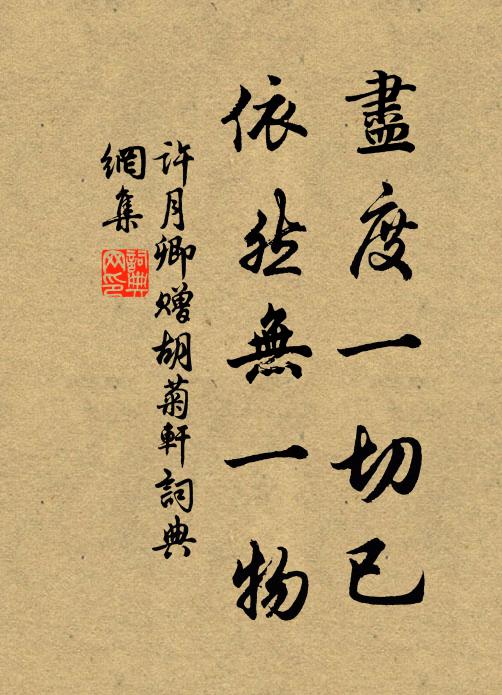 盡度一切已
依然無一物
許月卿贈胡菊軒詞典
網集
詞典
网印